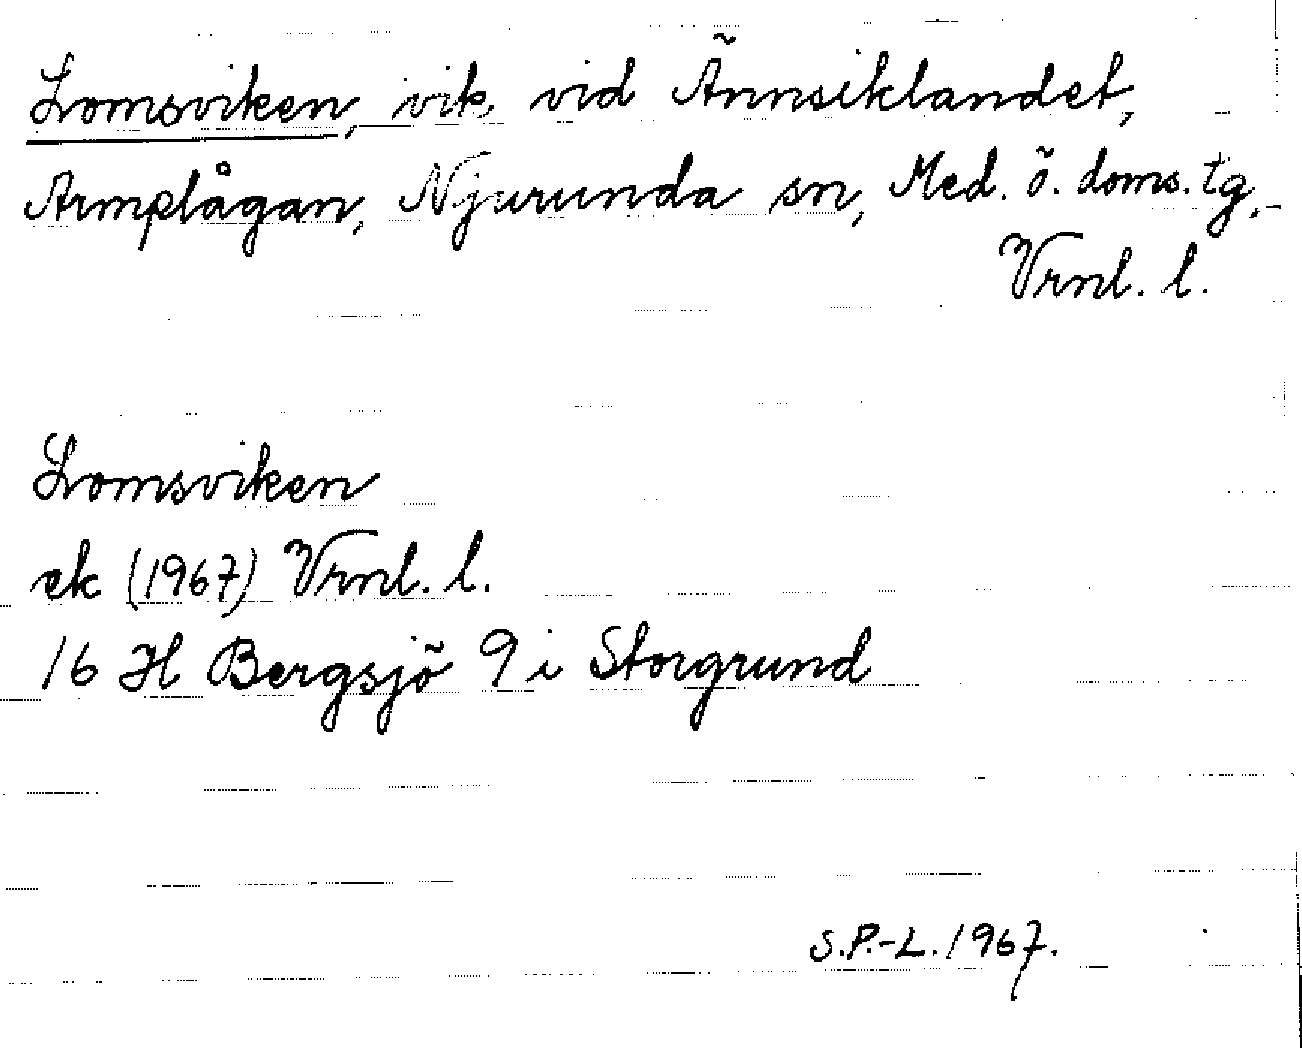 Lomsviken, vik, vid Ännsiklandet,
Armplågan, Njurunda sn, Med. ö. doms. tg,
Vrnl. l.
Lomsviken
ek (1967) Vrnl. l.
16 H Bergsjö 9 i Storgrund
S.P.-L. 1967.